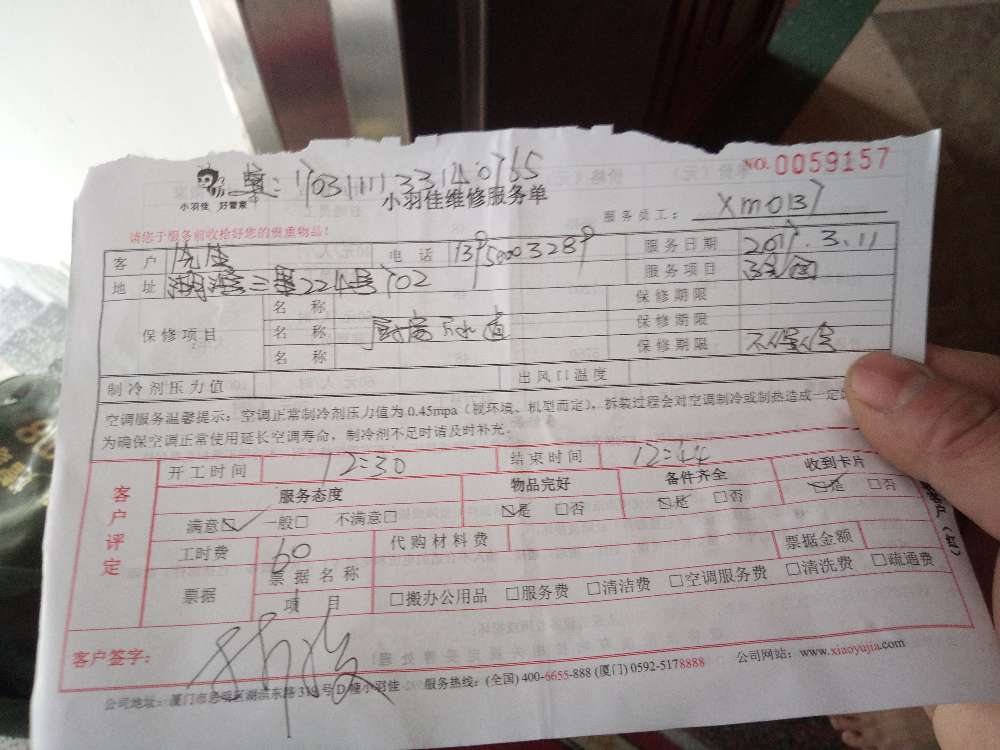 NO. 0059157
小羽佳 好管家
单:1703111133140765
小羽佳维修服务单
服务员工: xm0137
请您于服务前收拾好您的贵重物品!
客户 电话 13950003289 服务日期 2017.3.11
地址 三里224号702 服务项目
保修项目 名称 保修期限
名称 厨房下水道 保修期限
名称 保修期限 不保修
制冷剂压力值 出风口温度
空调服务温馨提示:空调正常制冷剂压力值为0.45mpa(视环境、机型而定),拆装过程会对空调制冷或制热造成一定
为确保空调正常使用延长空调寿命,制冷剂不足时请及时补充。
客户评定
开工时间 12:30 结束时间 12:44
服务态度 物品完好 备件齐全 收到卡片
满意☑ 一般□ 不满意□ ☑是 □否 ☑是 □否 ☑是 □否
工时费 60 代购材料费 票据金额
票据 票据名称
项目 □搬办公用品 □服务费 □清洁费 □空调服务费 □清洗费 □疏通费
客户签字:
公司地址:厦门市思明区湖滨东路319号D幢小羽佳 服务热线:(全国) 400-6655-888 (厦门) 0592-5178888 公司网站:www.xiaoyujia.com
客户(红)